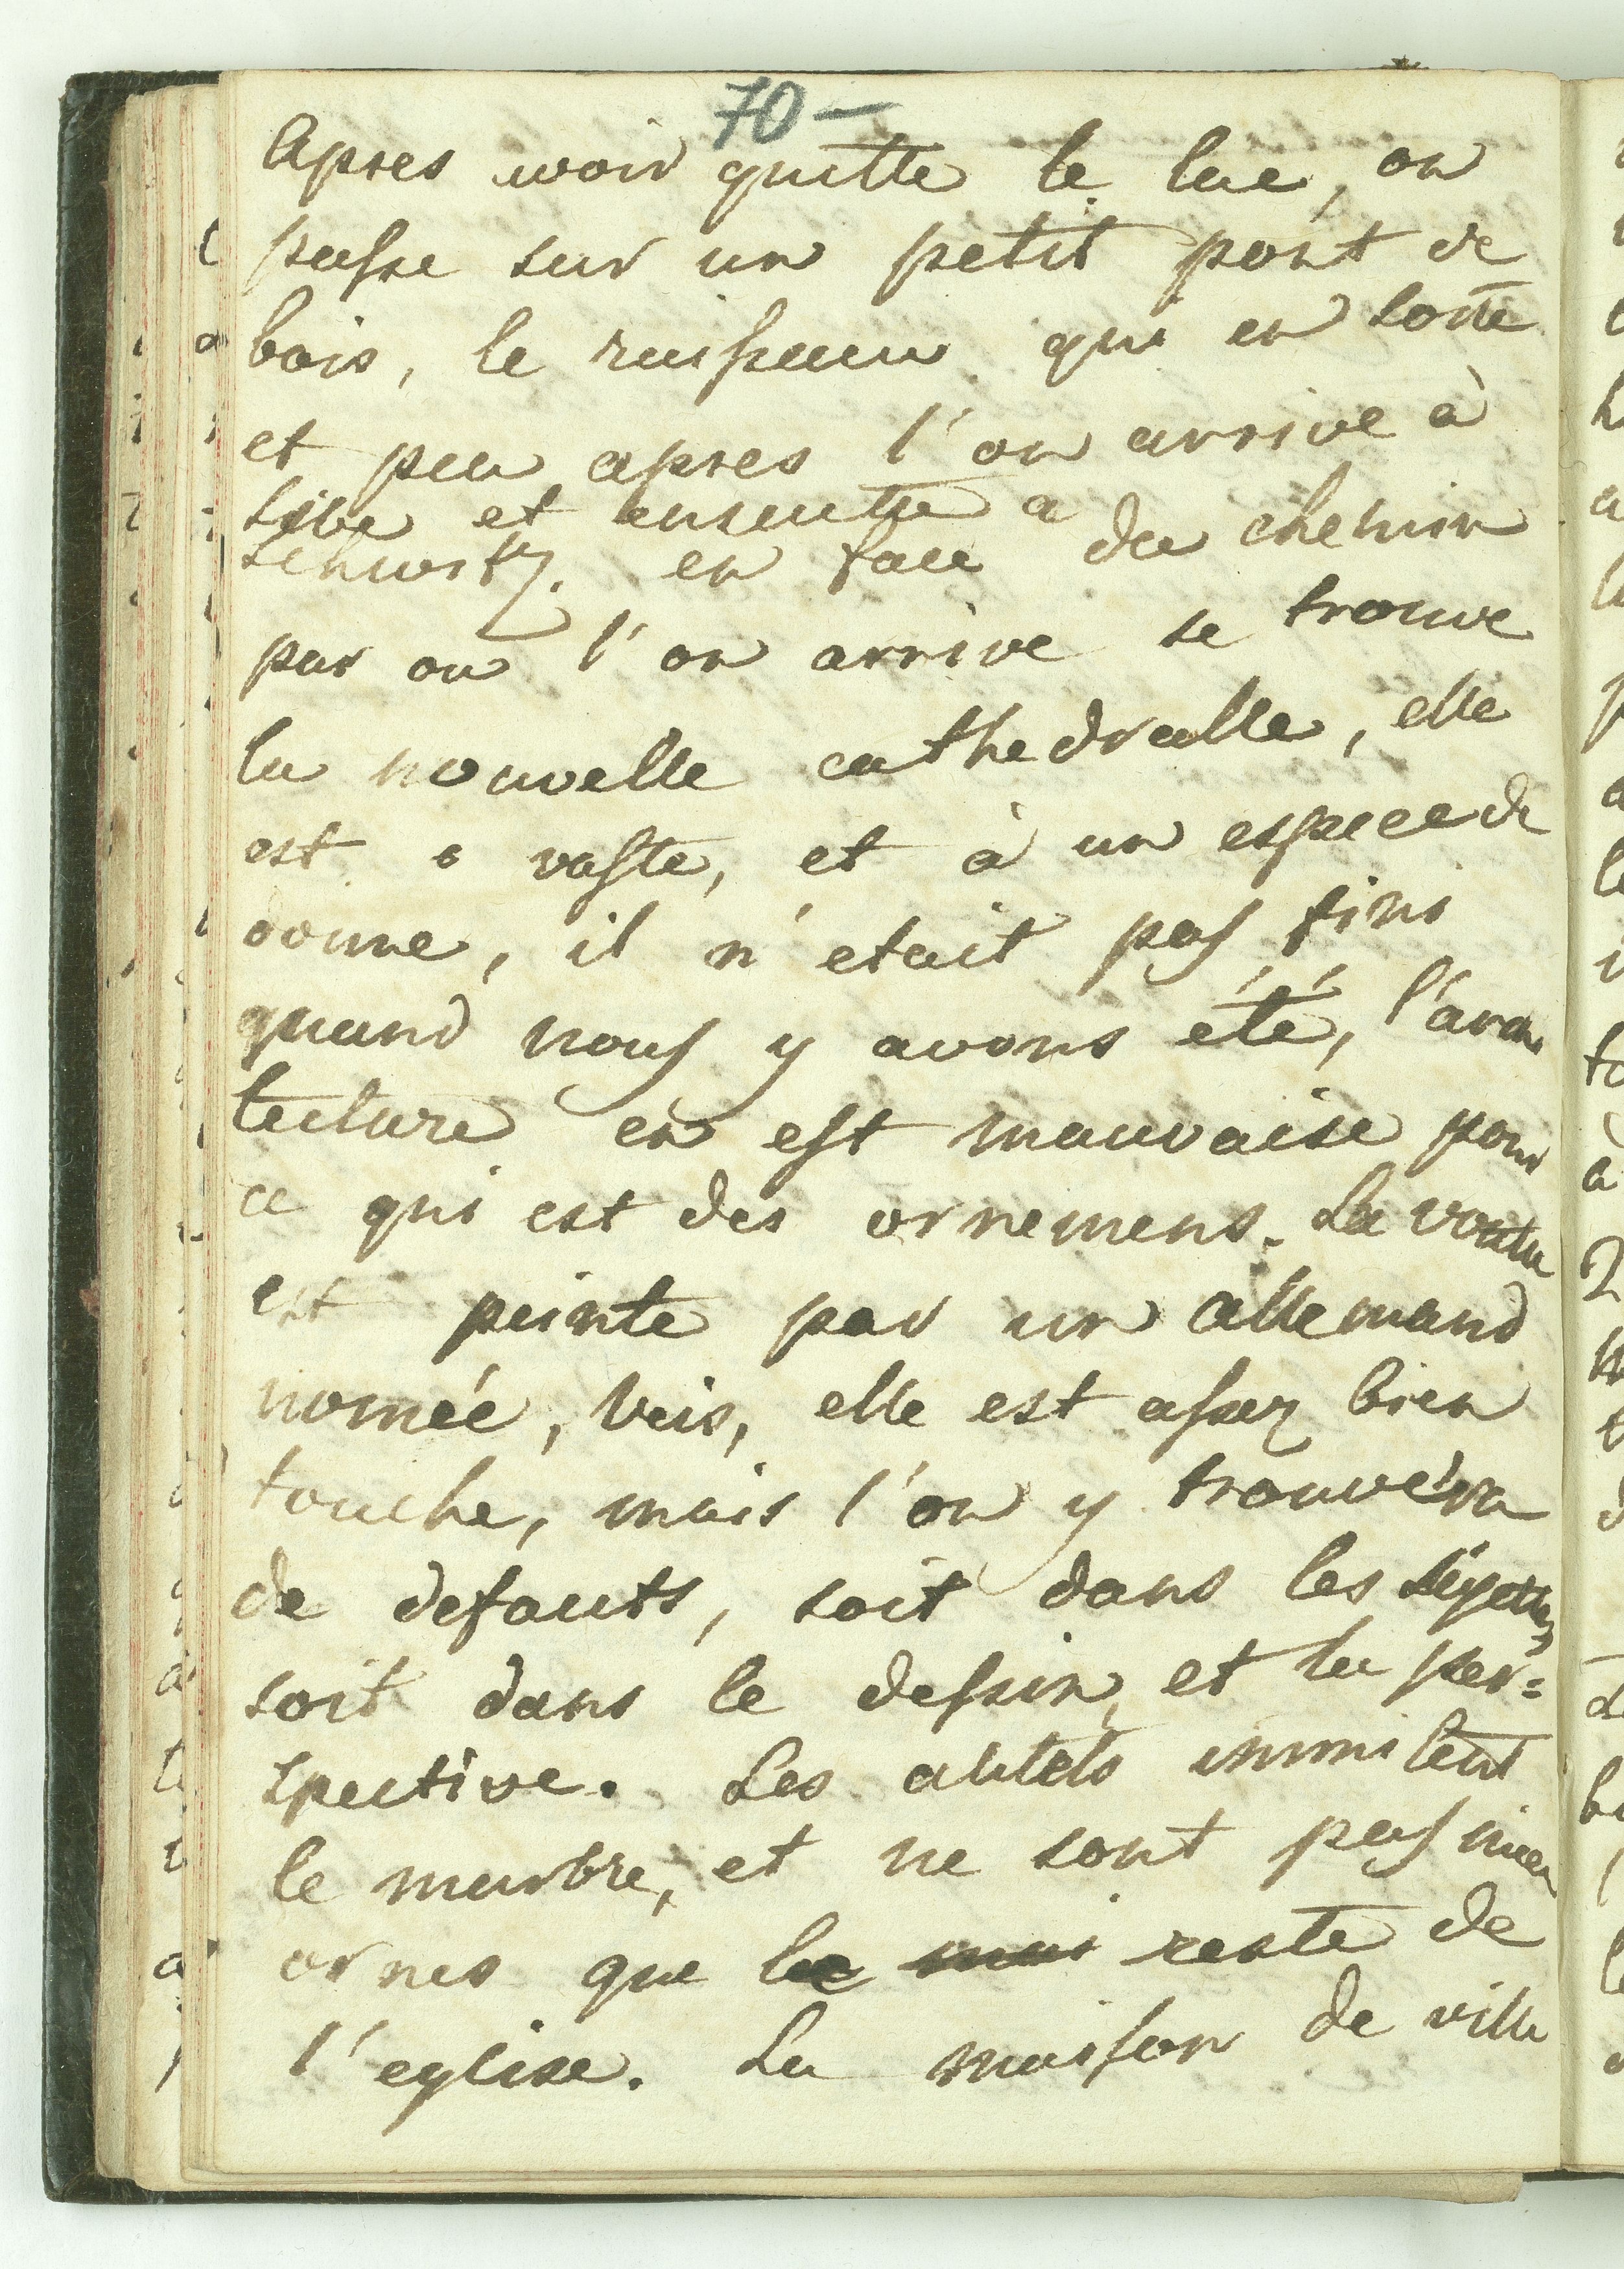 70-
Apres avoir quitte le lac, on
passe sur un petit pont de
bois, le ruisseau qui en sorte
et peu apres l'on arrive à
Sive et ensuitte a
Schwitz. en face du chemin
par ou l'on arrive se trouve
la nouvelle cathedralle, elle
est vaste, et à un espece de
dome, il n'etait pas fini
quand nous y avons été,
tecture en est mauvaise pour
ce qui est des ornemens. La voute
est peinte par un allemand
nomée, Veis, elle est assez bien
touche, mais l'on y trouvera
de defauts, soit dans les
soit dans le dessin, et la per=
spective. Les autels immitent
le marbre, et ne sont pas mieu
ornes que le reste de
l'eglise. La maison de ville